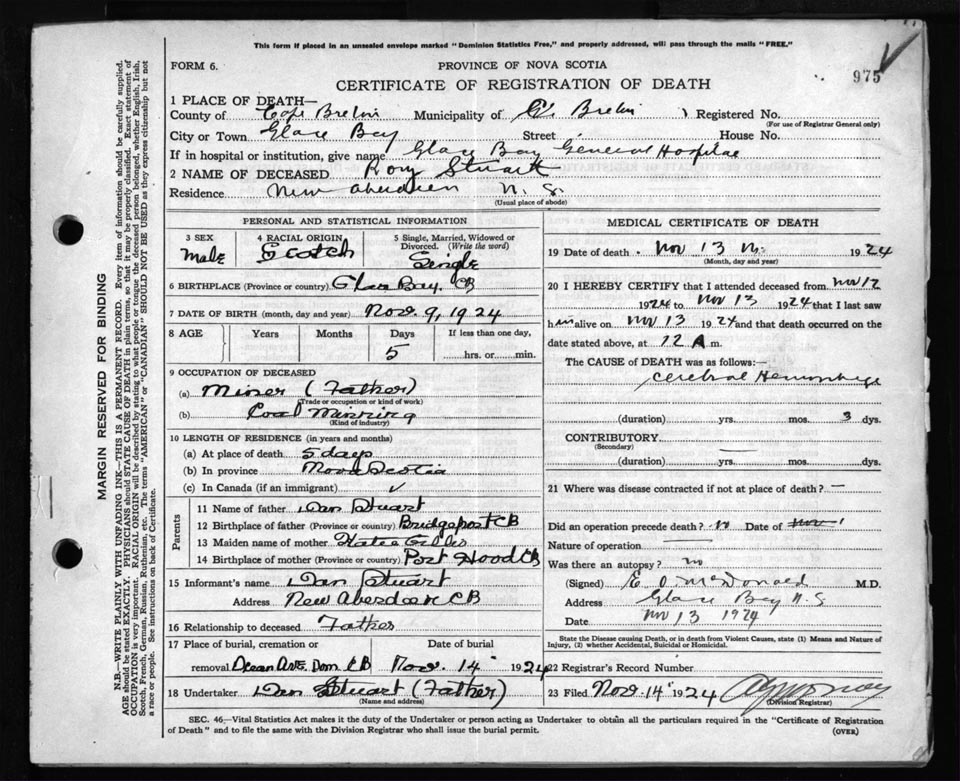 This form if placed in an unsealed envelope marked "Dominion Statistics Free," and properly addressed, will pass through the mails "FREE."
FORM 6.
PROVINCE OF NOVA SCOTIA
975
CERTIFICATE OF REGISTRATION OF DEATH
1 PLACE OF DEATH—
County of Cape Breton Municipality of C. Breton Registered No.
(For use of Registrar General only)
City or Town Glace Bay Street House No.
If in hospital or institution, give name Glace Bay General Hospital
2 NAME OF DECEASED Rory Stuart
Residence New Aberdeen N. S.
(Usual place of abode)
PERSONAL AND STATISTICAL INFORMATION
3 SEX
Male
4 RACIAL ORIGIN
Scotch
5 Single, Married, Widowed or Divorced. (Write the word)
Single
6 BIRTHPLACE (Province or country) Glace Bay. CB
7 DATE OF BIRTH (month, day and year) Nov. 9, 1924
8 AGE Years Months Days If less than one day,
5 hrs. or min.
9 OCCUPATION OF DECEASED
(a) Miner (Father)
(Trade or occupation or kind of work)
(b) Coal Minning
(Kind of industry)
10 LENGTH OF RESIDENCE (in years and months)
(a) At place of death 5 days
(b) In province Nova Scotia
(c) In Canada (if an immigrant) ✓
Parents
11 Name of father Dan Stuart
12 Birthplace of father (Province or country) Bridgeport CB
13 Maiden name of mother Katie Gillis
14 Birthplace of mother (Province or country) Port Hood CB
15 Informant's name Dan Stuart
Address New Aberdeen CB
16 Relationship to deceased Father
17 Place of burial, cremation or Date of burial
removal Ocean Ave. Dom. CB Nov. 14 1924
18 Undertaker Dan Stuart (Father)
(Name and address)
MEDICAL CERTIFICATE OF DEATH
19 Date of death Nov 13 1924
(Month, day and year)
20 I HEREBY CERTIFY that I attended deceased from Nov 12
1924 to Nov 13 1924 that I last saw
him alive on Nov 13 1924 and that death occurred on
date stated above, at 12 A m.
The CAUSE OF DEATH was as follows:—
Cerebral Hemorrhage
(duration) yrs. mos. 3 dys.
CONTRIBUTORY
(Secondary)
(duration) yrs. mos. dys.
21 Where was disease contracted if not at place of death? —
Did an operation precede death? no Date of
Nature of operation
Was there an autopsy? no
(Signed) E O McDonald M.D.
Address Glace Bay N.S
Date Nov 13 1924
State the Disease causing Death, or in death from Violent Causes, state (1) Means and Nature of
Injury, (2) whether Accidental, Suicidal or Homicidal.
22 Registrar's Record Number
23 Filed Nov. 14 1924
(Division Registrar)
SEC. 46.—Vital Statistics Act makes it the duty of the Undertaker or person acting as Undertaker to obtain all the particulars required in the "Certificate of Registration
of Death" and to file the same with the Division Registrar who shall issue the burial permit.
(OVER)
MARGIN RESERVED FOR BINDING
N.B.—WRITE PLAINLY WITH UNFADING INK—THIS IS A PERMANENT RECORD. Every item of information should be carefully supplied.
AGE should be stated EXACTLY. PHYSICIANS should STATE CAUSE OF DEATH in plain terms, so that it may be properly classified. Exact statement of
OCCUPATION is very important. RACIAL ORIGIN will be described by stating to what people or tongue the deceased person belonged, whether English, Irish,
Scotch, French, German, Russian, Ruthenian, etc. The terms "AMERICAN" or "CANADIAN" SHOULD NOT BE USED as they express citizenship but not
a race or people. See instructions on back of Certificate.